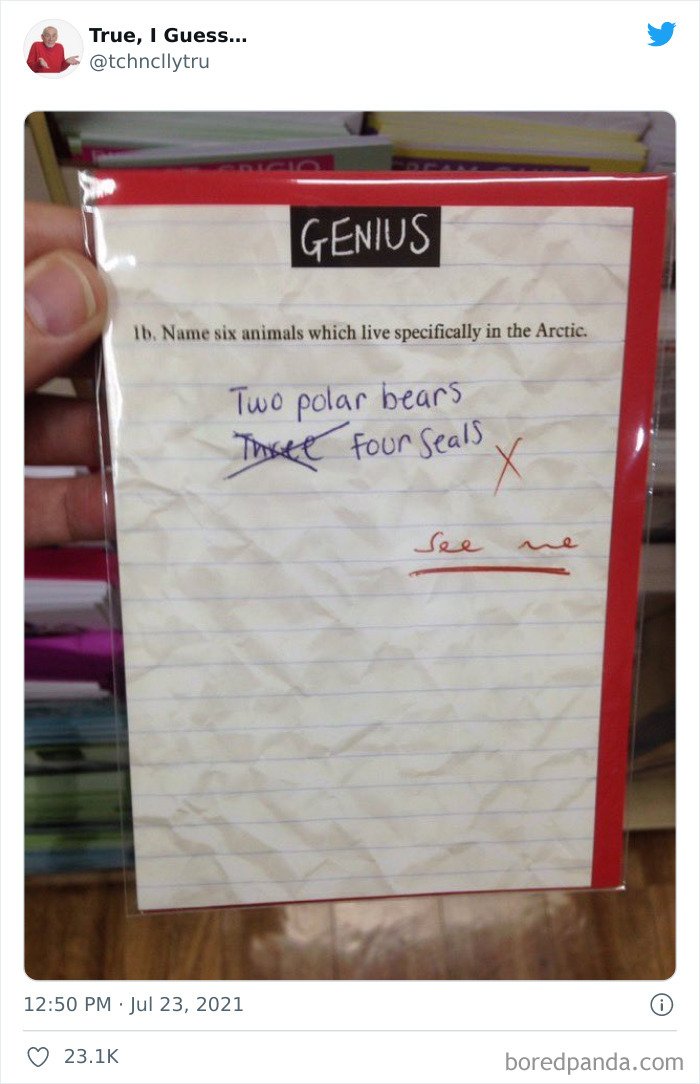 True, I Guess...
@tchncllytru
GENIUS
1b. Name six animals which live specifically in the Arctic.
Two polar bears
Three Four Seals X
See me
12:50 PM · Jul 23, 2021
23.1K
boredpanda.com